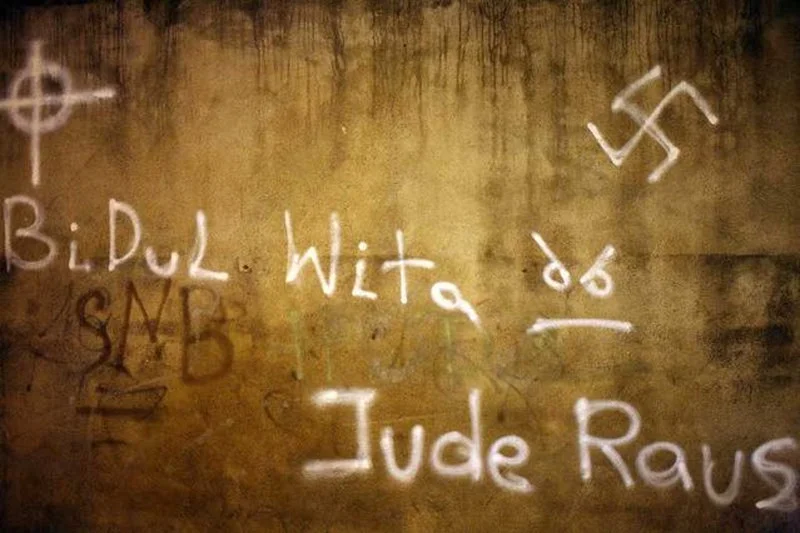 BiDuL Wita
SNB
Jude Raus